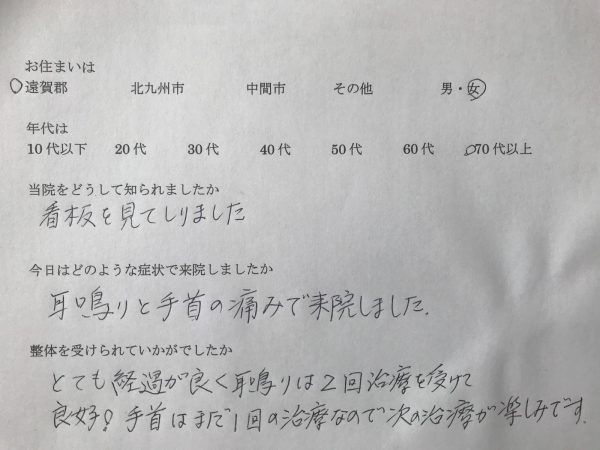 お住まいは
遠賀郡 北九州市 中間市 その他 男・女
年代は
10代以下 20代 30代 40代 50代 60代 70代以上
当院をどうして知られましたか
看板を見てしりました
今日はどのような症状で来院しましたか
耳鳴りと手首の痛みで来院しました.
整体を受けられていかがでしたか
とても経過が良く耳鳴りは2回治療を受けて
良好!手首はまだ1回の治療なので次の治療が楽しみです.